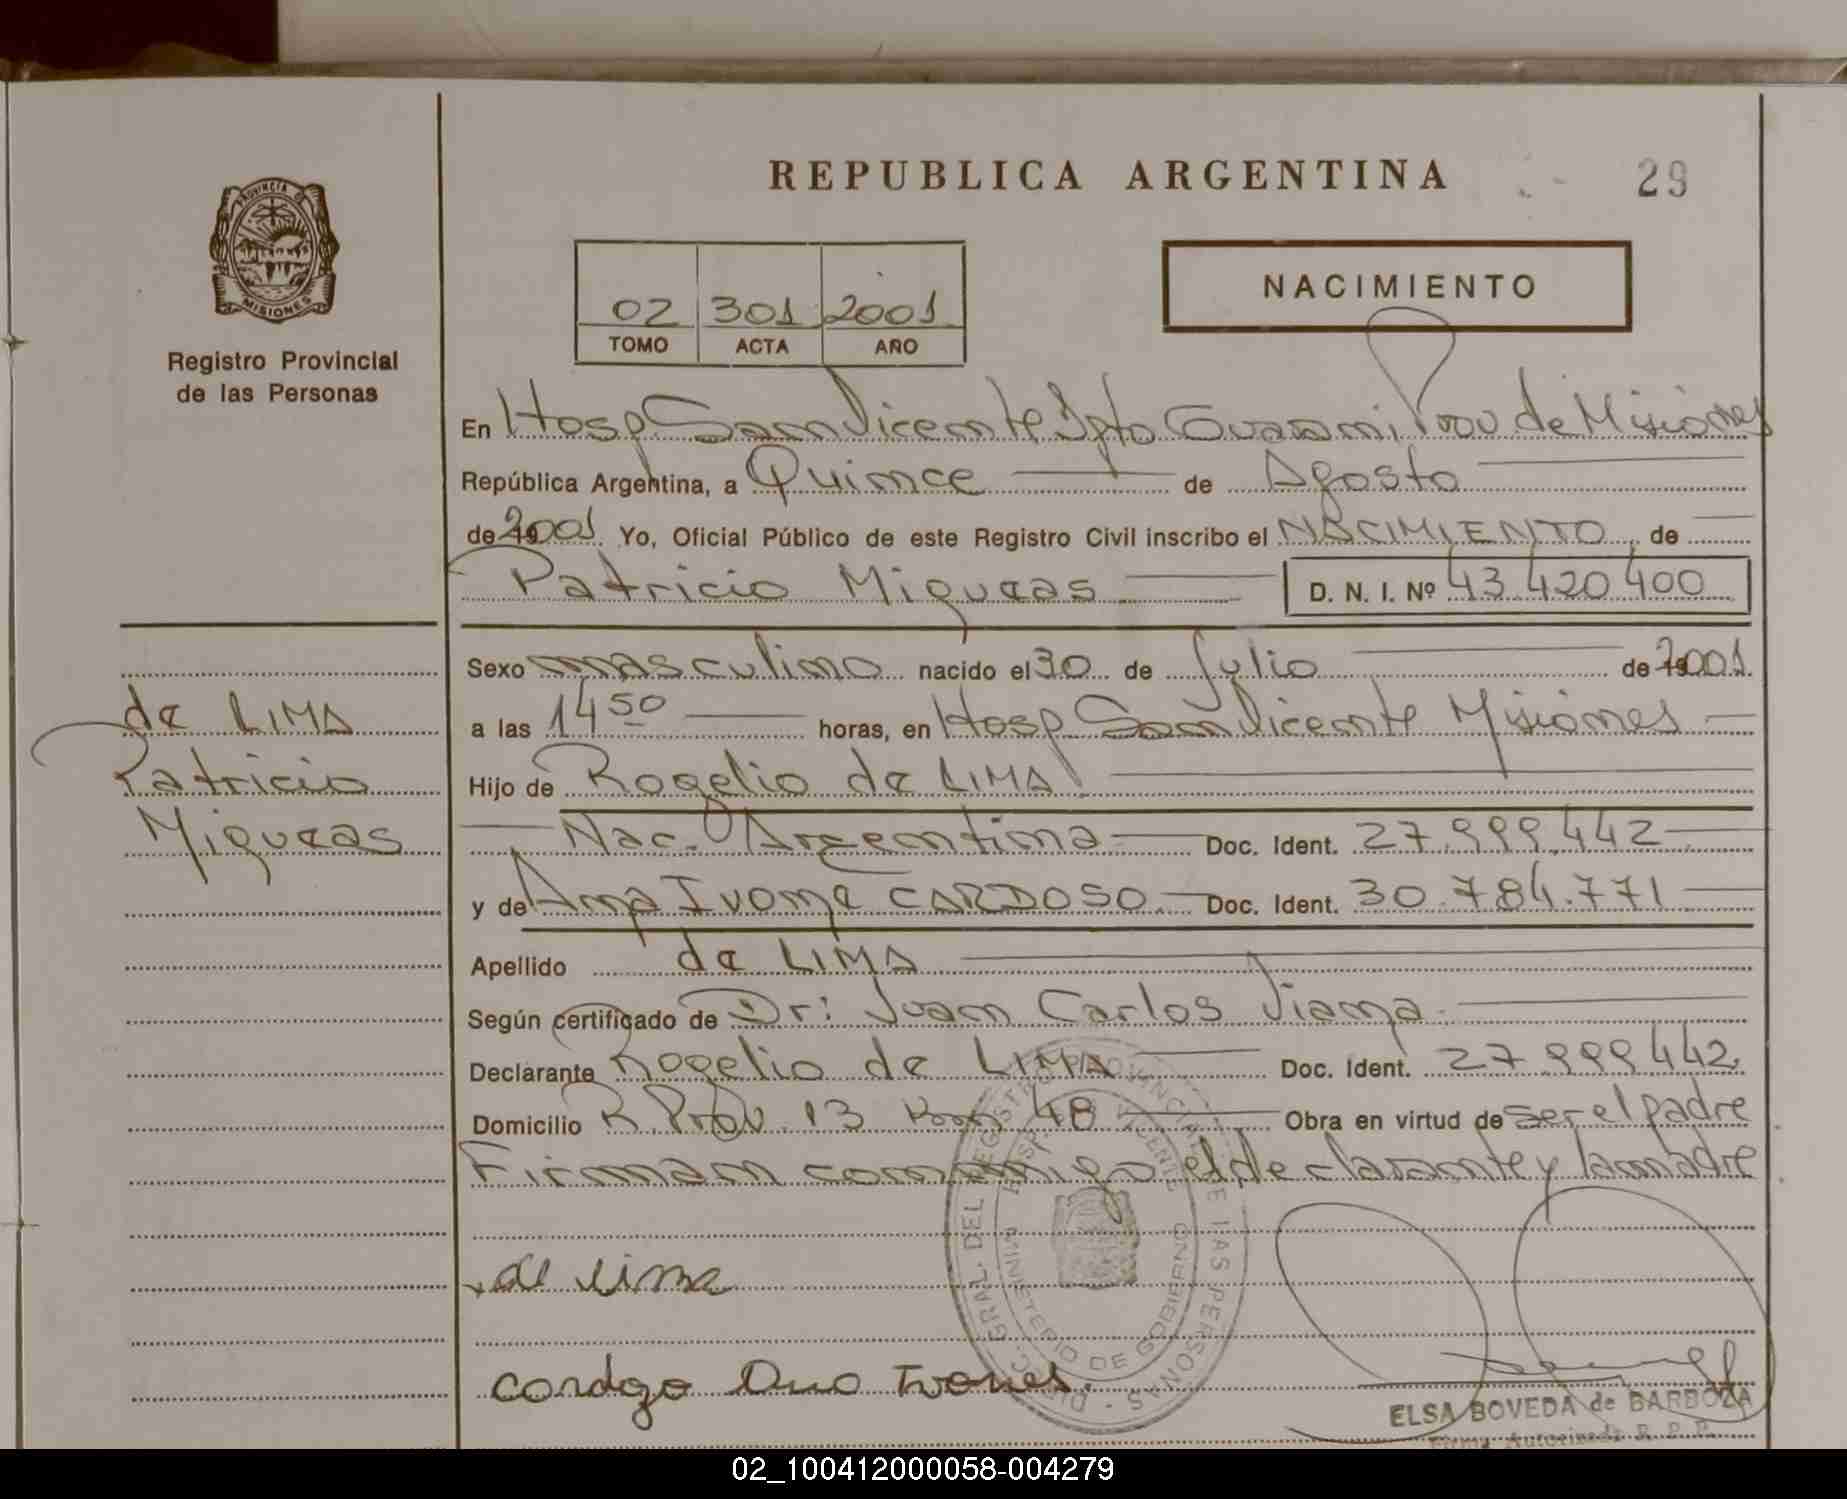 REPUBLICA ARGENTINA
29
PROVINCIA DE
MISIONES
Registro Provincial
de las Personas
02 301 2001
TOMO ACTA AÑO
NACIMIENTO
En Hosp San Vicente Dpto Guarani Prov de Misiones
República Argentina, a Quince de Agosto
de 2001 Yo, Oficial Público de este Registro Civil inscribo el NACIMIENTO de
Patricio Miqueas D. N. I. Nº 43.420.400
Sexo masculino nacido el 30 de Julio de 2001
a las 14 50 horas, en Hosp San Vicente Misiones
Hijo de Rogelio de LIMA
Nac. Argentina Doc. Ident. 27.999.442
y de Ana Ivone CARDOSO Doc. Ident. 30.784.771
Apellido de LIMA
Según certificado de Dr: Juan Carlos Viana
Declarante Rogelio de LIMA Doc. Ident. 27.999.442
Domicilio R. Prov. 13 Km 48 Obra en virtud de ser el padre
Firman conmigo el declarante y la madre
de LIMA
Patricio
Miqueas
de lima
DIREC. GRAL. DEL REGISTRO PROVINCIAL DE LAS PERSONAS
HOSP. S. VICENTE
MINISTERIO DE GOBIERNO
ELSA BOVEDA de BARBOZA
Firma Autorizada R. P. P.
02_100412000058-004279